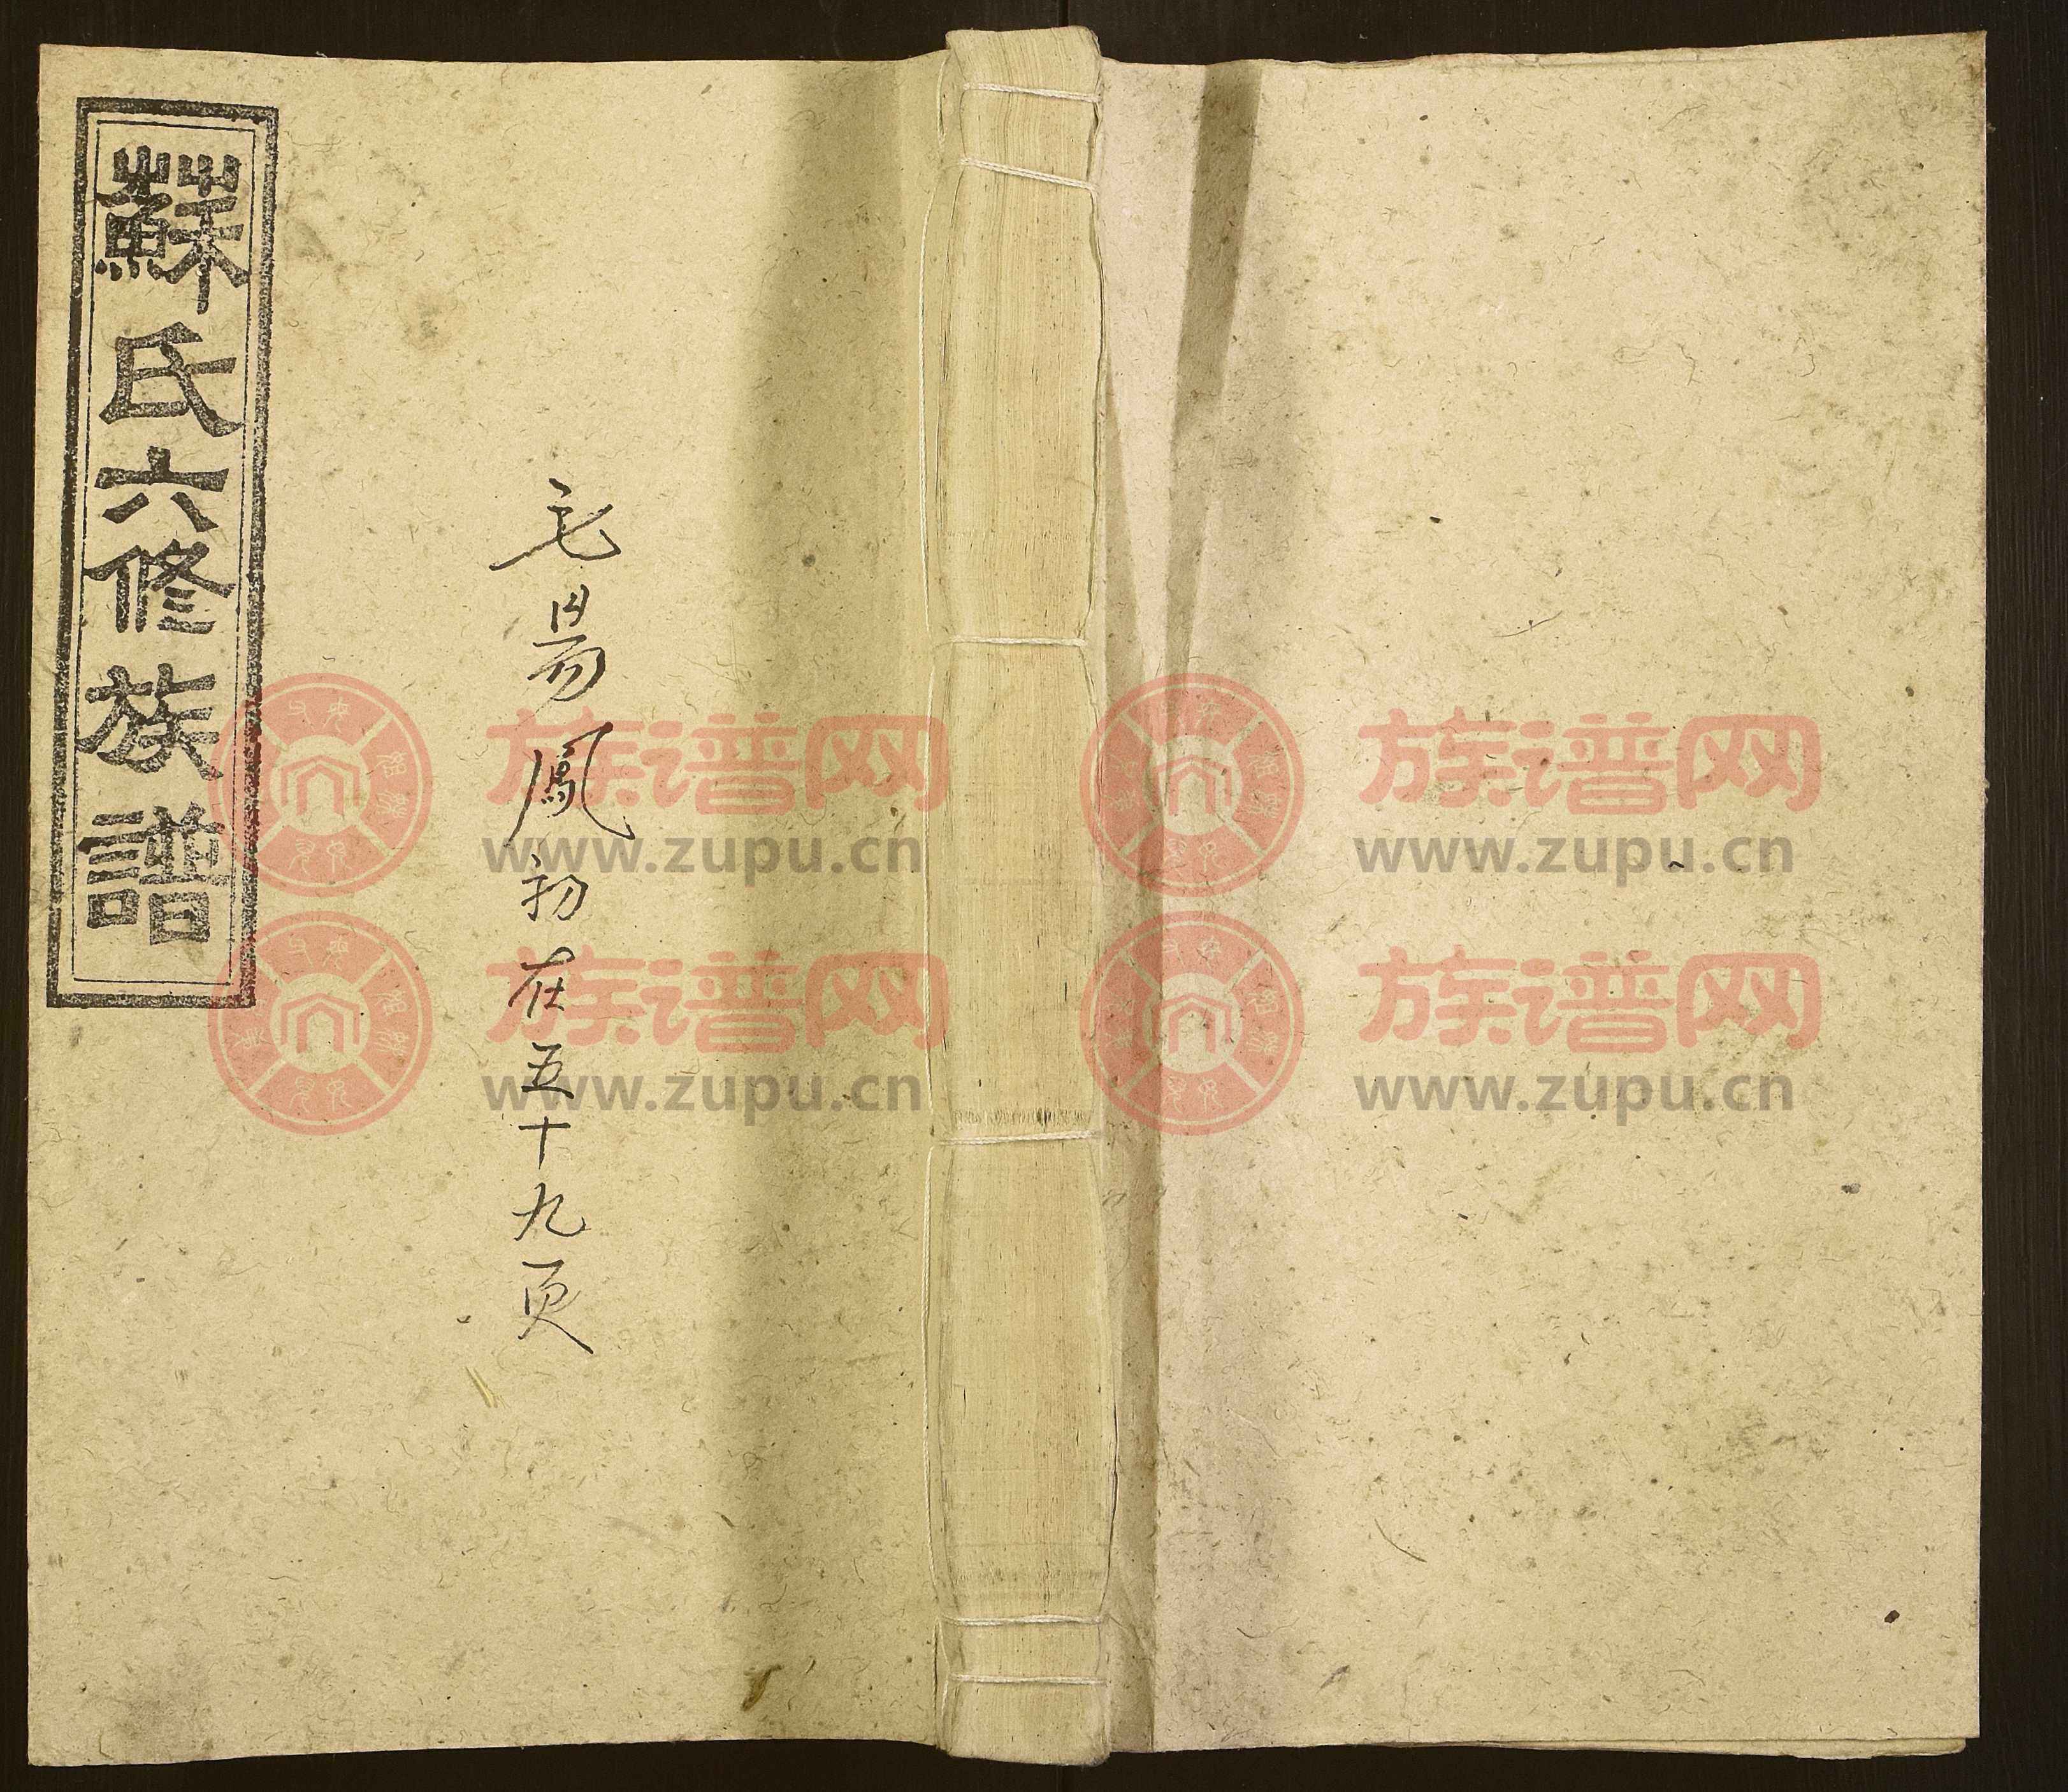 蘇氏六修族譜
毛昜鳳初在五十九頁
族谱网
www.zupu.cn
族谱网
www.zupu.cn
族谱网
www.zupu.cn
族谱网
www.zupu.cn